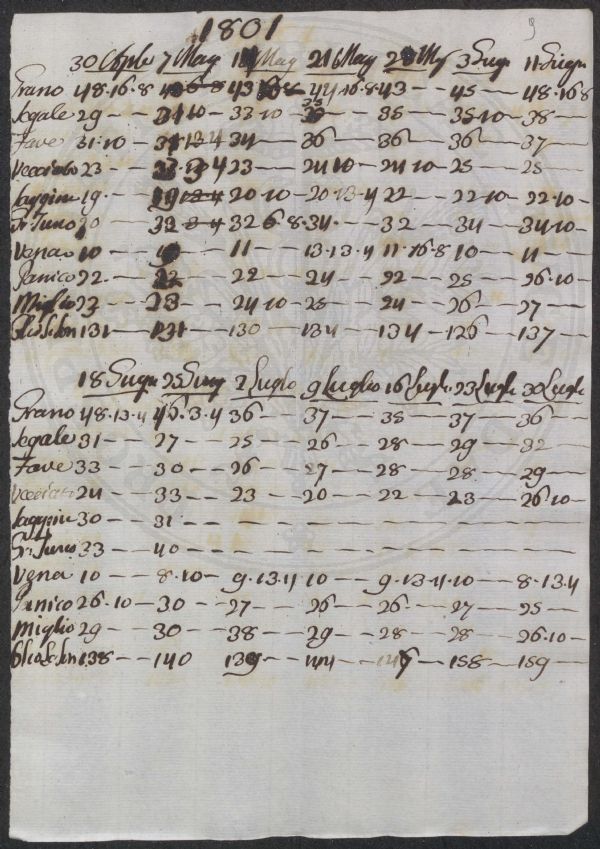 1801 9
30 Aprle 7 Mag 1 Mag 21 Mag 28 Mg 3 Giug 11 Giugn
Grano 48·16·8 43 44·16·8 43 - - 45 - - 48·16·8
Segale 29 - - 33·10 - 35 - - 35·10 - 38 - -
Fave 31·10 - 13 4 34 - - 36 - - 36 - - 36 - - 37 - -
Vecciato 23 - - 23 - - 24 10 - 24 10 - 25 - - 25 - -
Saggina 19 · - - 19 13 4 20·10 - 20·13·4 22 - - 22·10 - 22·10 -
Gr. Turco 30 - - 32 32 6·8 34· - - 32 - - 34 - - 34·10 -
Vena 10 - - 11 - - 13·13·4 11·16·8 10 - - 11 - -
Panico 22 · - - 22 - - 22 - - 24 - - 22 - - 25 - - 26·10 -
Miglio 23 - - 23 - - 24·10 - 25 - - 24 - - 26 - - 27 - -
131 - - 131 - - 130 - - 134 - - 134 - - 126 - - 137 - -
18 Giugn 25 Giug 2 Luglio 9 Luglio 16 Luglo 23 Luglo 30 Luglo
Grano 48·13·4 46·3·4 36 - - 37 - - 35 - - 37 - - 36 - -
Segale 31 - - 27 - - 25 - - 26 - - 28 - - 29 - - 32 - -
Fave 33 - - 30 - - 26 - - 27 - - 28 - - 28 - - 29 - -
Vecciato 24 - - 33 - - 23 - - 20 - - 22 - - 23 - - 26·10 -
Saggina 30 - - 31 - - - - - - - - - - - -
Gr. Turco 33 - - 40 - - - - - - - - - - - -
Vena 10 - - 8·10 - 9·13·4 10 - - 9·13·4 10 - - 8·13·4
Panico 26·10 - 30 - - 27 - - 26 - - 26 - - 27 - - 25 - -
Miglio 29 - - 30 - - 38 - - 29 - - 28 - - 28 - - 26·10 -
138 - - 140 139 - - 144 - - 158 - - 159 - -